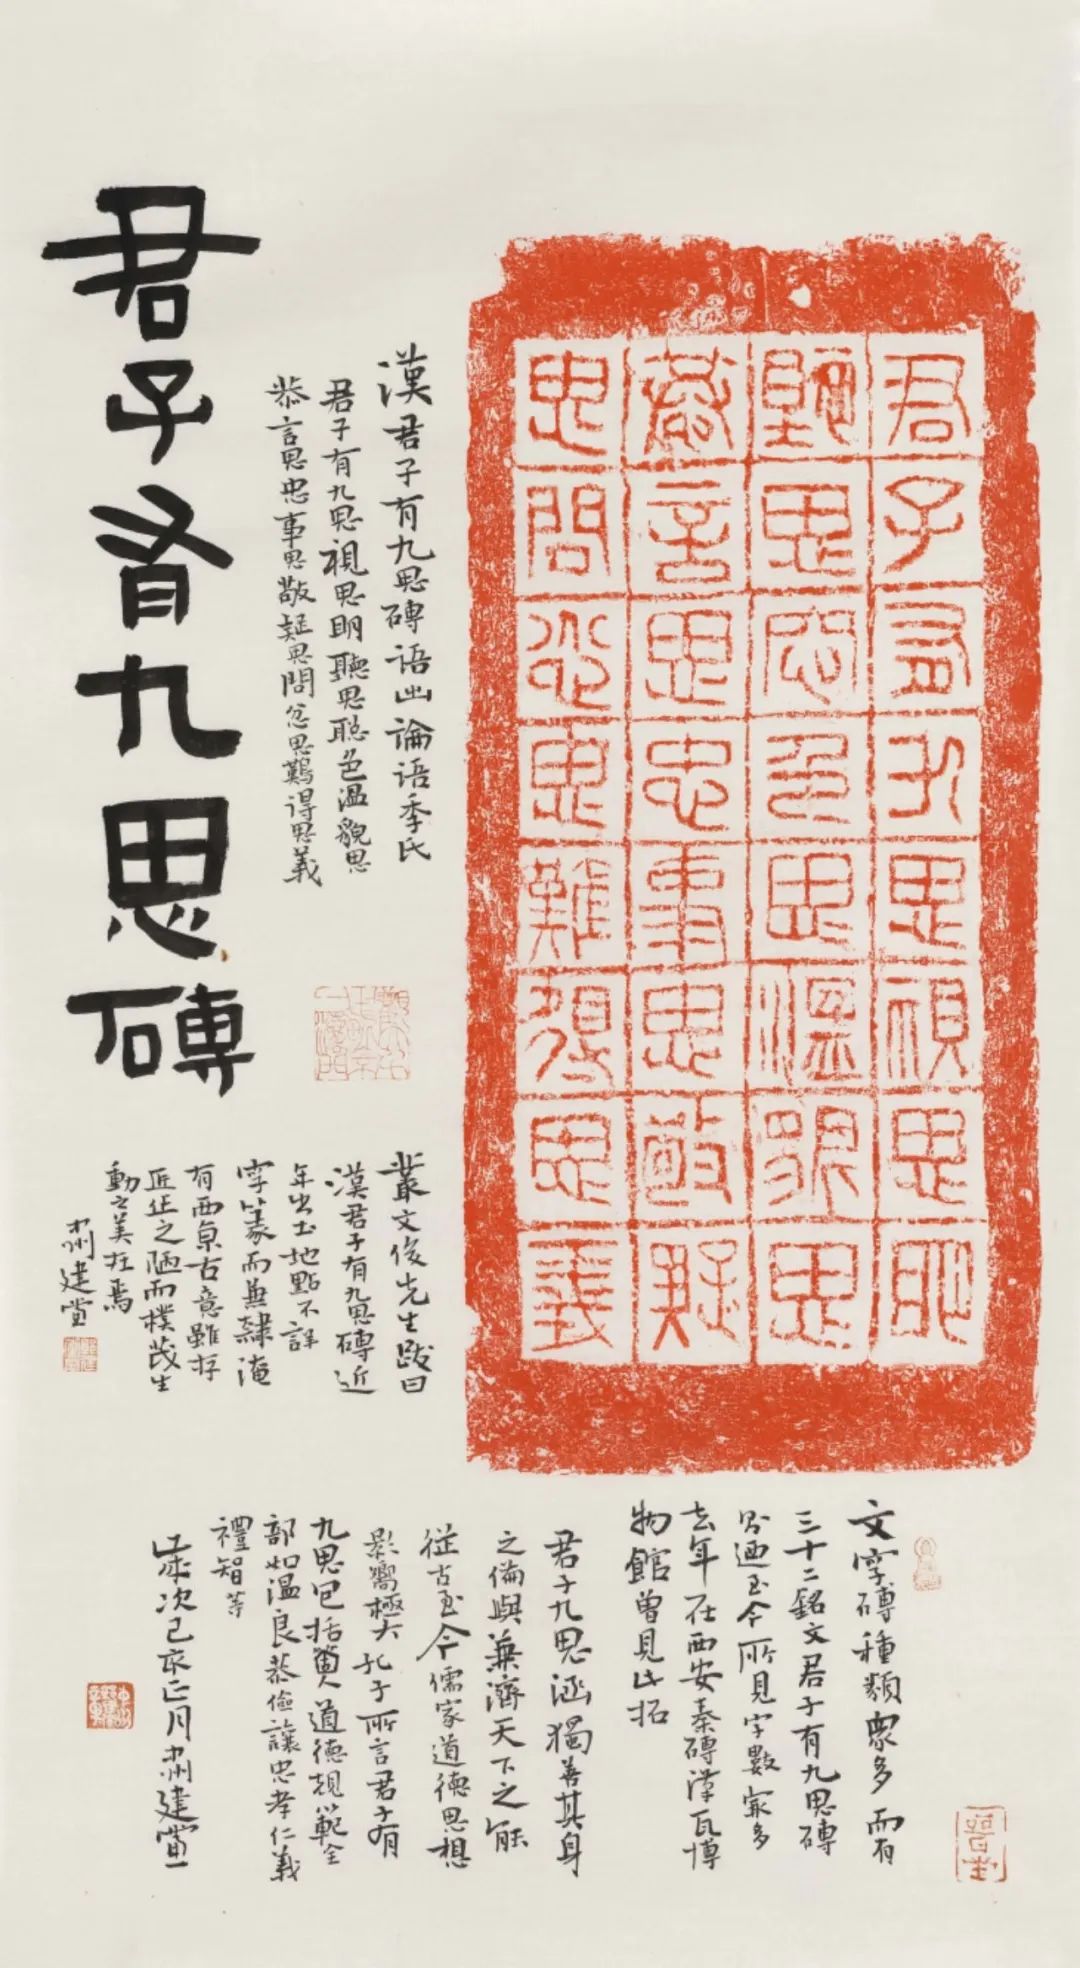 君子有九思視思明
聽思聰色思溫貌思
恭言思忠事思敬疑
思問忿思難得思義
漢君子有九思磚语出論语季氏
君子有九思視思明聽思聰色溫貌思
恭言思忠事思敬疑思問忿思難得思義
君子有九思磚
叢文俊先生跋曰
漢君子有九思磚近
年出土地點不詳
字篆而兼隸淹
有西京古意雖存
匠作之陋而樸茂生
動之美在焉
建黨
文字磚種類眾多而有
三十二銘文君子有九思磚
迺至今所見字數最多
去年在西安秦磚漢瓦博
物館曾見此拓
君子九思涵獨善其身
之倫與兼濟天下之能
從古至今儒家道德思想
影響極大孔子所言君子有
九思包括個人道德規範全
部如溫良恭儉讓忠孝仁義
禮智等
歲次己亥正月建黨